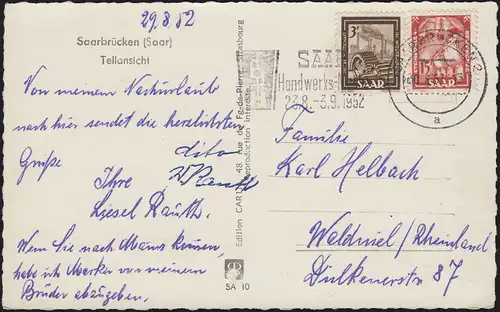 29.8.52
Saarbrücken (Saar)
Teilansicht
Von meinem Nachurlaub
nach hier sendet die herzlichsten
Grüße dito
Ihre W. Rauth
Liesel Rauth.
Wenn Sie nach Mainz kommen,
habe ich Marken von meinem
Bruder abzugeben.
Edition CAR 48 rue du Fg-de-Pierre, Strasbourg
Reproduction interdite
SA 10
SAAR
Handwerks-
27.8.-3.9.1952
3F
SAAR
15F
SAAR
a
Familie
Karl Helbach
Waldniel / Rheinland
Dülkenerstr 87